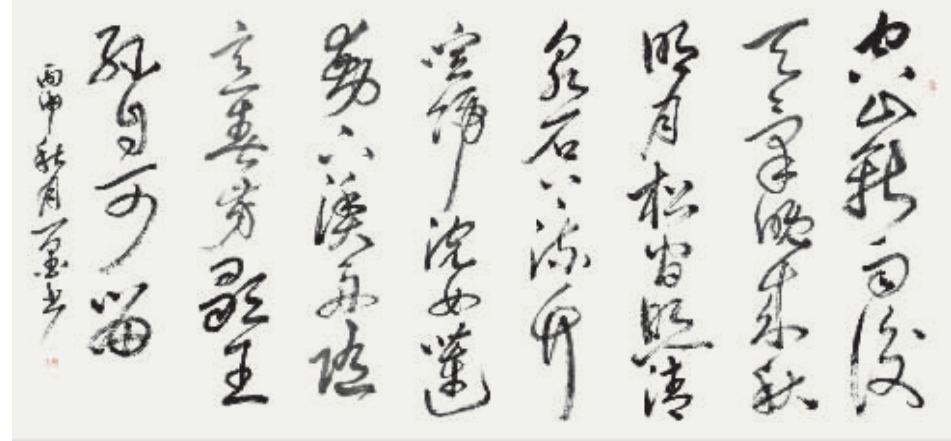 空山新雨後
天氣晚来秋
明月松間照清
泉石上流竹
喧歸浣女蓮
動下漁舟随
意春芳歇王
孫自可留
丙申秋月墨书